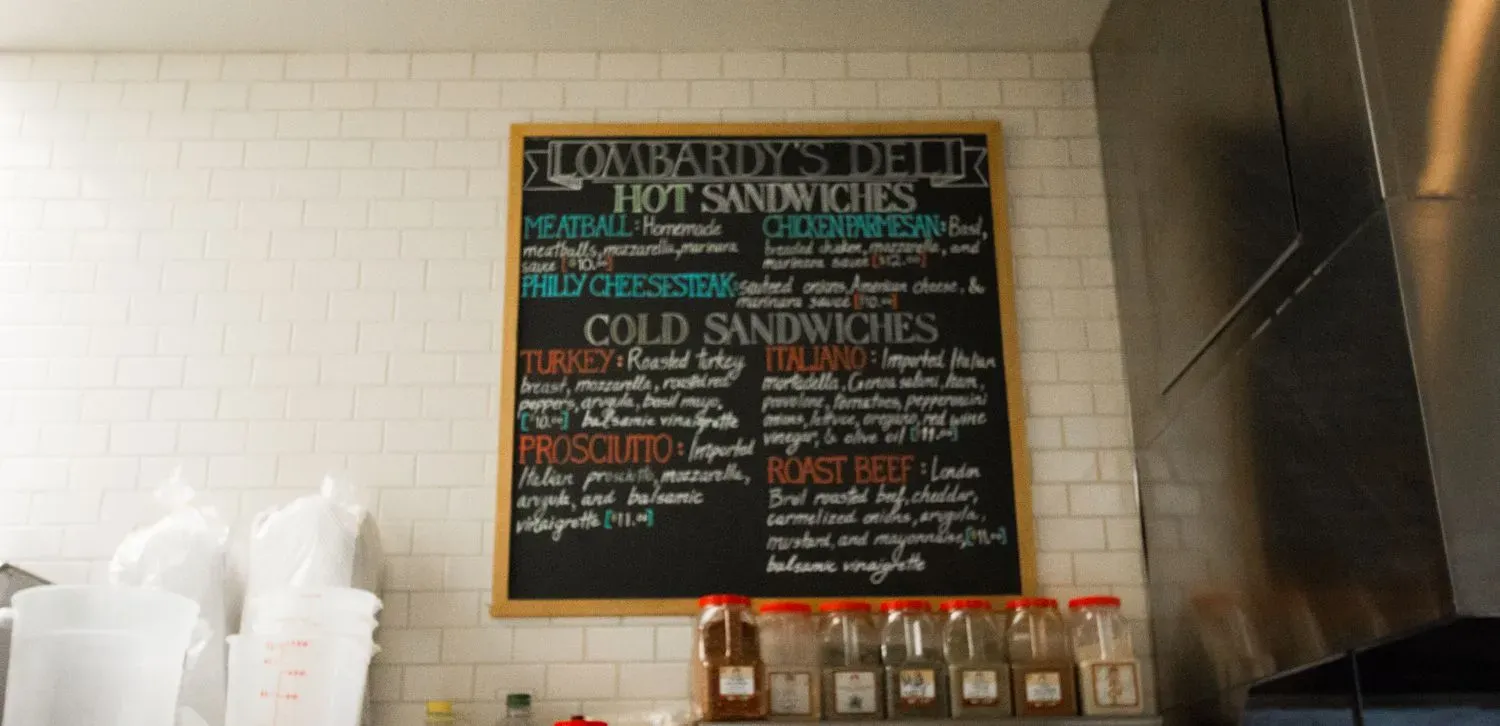 LOMBARDY'S DELI
HOT SANDWICHES
MEATBALL: Homemade
meatballs, mozzarella, marinara
sauce [$10.00]
CHICKEN PARMESAN: Basil,
breaded chicken, mozzarella, and
marinara sauce [$12.00]
PHILLY CHEESESTEAK: Sauteed onions, American cheese, &
marinara sauce [$10.00]
COLD SANDWICHES
TURKEY: Roasted turkey
breast, mozzarella, roasted red
peppers, arugula, basil mayo,
[$10.00] balsamic vinaigrette
PROSCIUTTO: Imported
Italian prosciutto, mozzarella,
arugula, and balsamic
vinaigrette [$11.00]
ITALIANO: Imported Italian
mortadella, Genoa salami, ham,
provolone, tomatoes, pepperoncini
onions, lettuce, oregano, red wine
vinegar, & olive oil [$11.00]
ROAST BEEF: London
Broil roasted beef, cheddar,
carmelized onions, arugula,
mustard, and mayonnaise, [$11.00]
balsamic vinaigrette